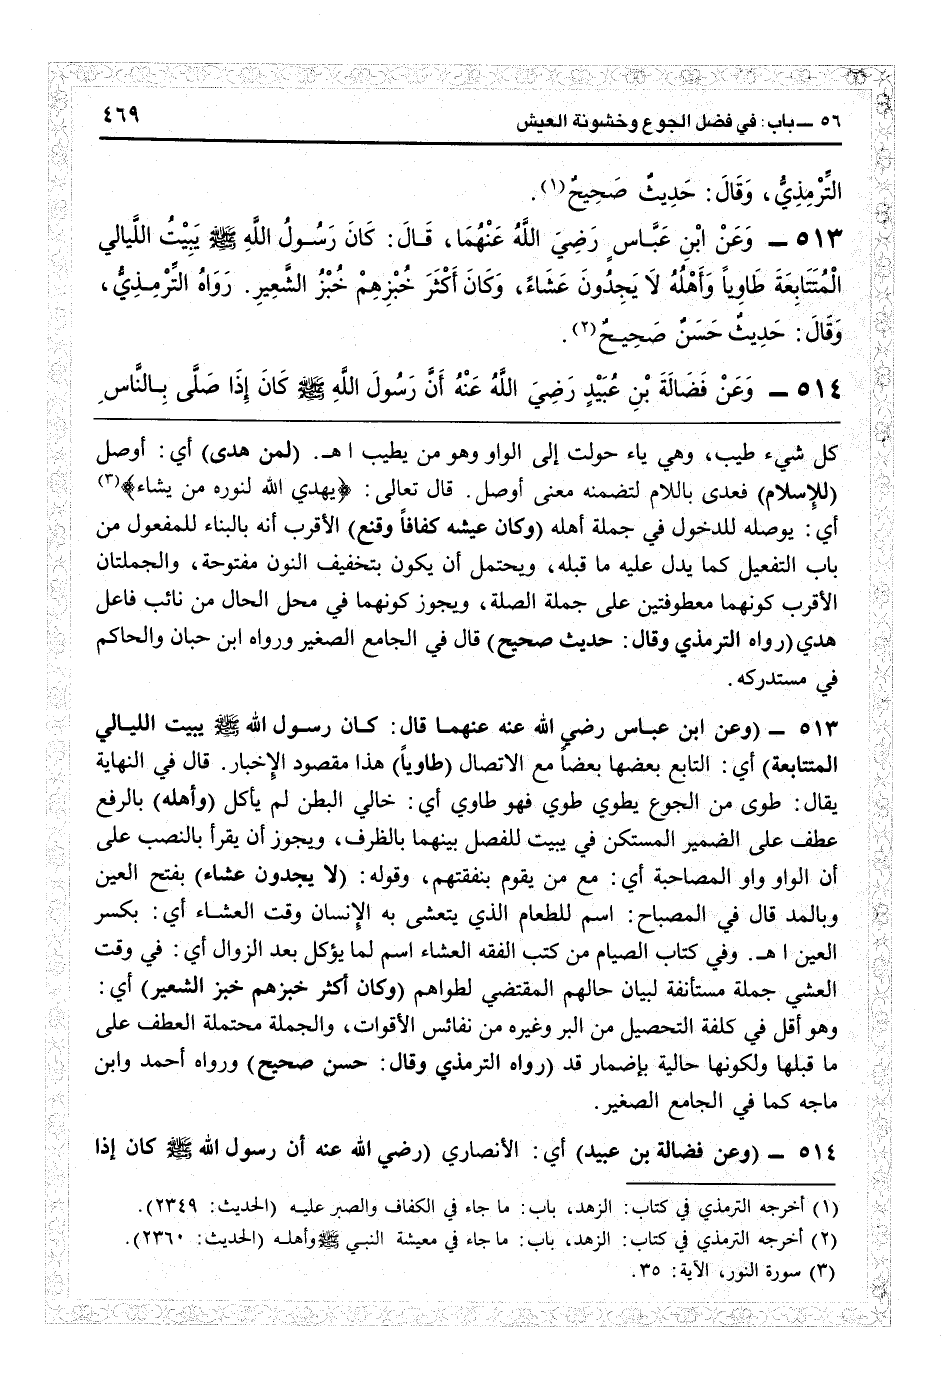 ٥٦ ــ باب: في فضل الجوع وخشونة العيش ٤٦٩
التِّرْمِذِيُّ، وَقَالَ: حَدِيثٌ صَحِيحٌ(١).
٥١٣ ــ وَعَنْ ابْنِ عَبَّاسٍ رَضِيَ اللَّهُ عَنْهُمَا، قَالَ: كَانَ رَسُولُ اللَّهِ ﷺ يَبِيْتُ اللَّيالي
الْمُتَتَابِعَةَ طَاوِياً وَأَهْلُهُ لاَ يَجِدُونَ عَشَاءً، وَكَانَ أَكْثَرَ خُبْزِهِمْ خُبْزُ الشَّعِيرِ. رَوَاهُ التِّرْمِذِيُّ،
وَقَالَ: حَدِيثٌ حَسَنٌ صَحِيحٌ(٢).
٥١٤ ــ وَعَنْ فَضَالَةَ بْنِ عُبَيْدٍ رَضِيَ اللَّهُ عَنْهُ أَنَّ رَسُولَ اللَّهِ ﷺ كَانَ إِذَا صَلَّى بِالنَّاسِ
كل شيء طيب، وهي ياء حولت إلى الواو وهو من يطيب ا هـ. (لمن هدى) أي: أوصل
(للإسلام) فعدى باللام لتضمنه معنى أوصل. قال تعالى: ﴿يهدي الله لنوره من يشاء﴾(٣)
أي: يوصله للدخول في جملة أهله (وكان عيشه كفافاً وقنع) الأقرب أنه بالبناء للمفعول من
باب التفعيل كما يدل عليه ما قبله، ويحتمل أن يكون بتخفيف النون مفتوحة، والجملتان
الأقرب كونهما معطوفتين على جملة الصلة، ويجوز كونهما في محل الحال من نائب فاعل
هدي (رواه الترمذي وقال: حديث صحيح) قال في الجامع الصغير ورواه ابن حبان والحاكم
في مستدركه.
٥١٣ ــ (وعن ابن عباس رضي الله عنه عنهما قال: كان رسول الله ﷺ يبيت الليالي
المتتابعة) أي: التابع بعضها بعضاً مع الاتصال (طاوياً) هذا مقصود الإخبار. قال في النهاية
يقال: طوى من الجوع يطوي طوي فهو طاوي أي: خالي البطن لم يأكل (وأهله) بالرفع
عطف على الضمير المستكن في يبيت للفصل بينهما بالظرف، ويجوز أن يقرأ بالنصب على
أن الواو واو المصاحبة أي: مع من يقوم بنفقتهم، وقوله: (لا يجدون عشاء) بفتح العين
وبالمد قال في المصباح: اسم للطعام الذي يتعشى به الإنسان وقت العشاء أي: بكسر
العين ا هـ. وفي كتاب الصيام من كتب الفقه العشاء اسم لما يؤكل بعد الزوال أي: في وقت
العشي جملة مستأنفة لبيان حالهم المقتضي لطواهم (وكان أكثر خبزهم خبز الشعير) أي:
وهو أقل في كلفة التحصيل من البر وغيره من نفائس الأقوات، والجملة محتملة العطف على
ما قبلها ولكونها حالية بإضمار قد (رواه الترمذي وقال: حسن صحيح) ورواه أحمد وابن
ماجه كما في الجامع الصغير.
٥١٤ ــ (وعن فضالة بن عبيد) أي: الأنصاري (رضي الله عنه أن رسول الله ﷺ كان إذا
(١) أخرجه الترمذي في كتاب: الزهد، باب: ما جاء في الكفاف والصبر عليه (الحديث: ٢٣٤٩).
(٢) أخرجه الترمذي في كتاب: الزهد، باب: ما جاء في معيشة النبي ﷺ وأهله (الحديث: ٢٣٦٠).
(٣) سورة النور، الآية: ٣٥.